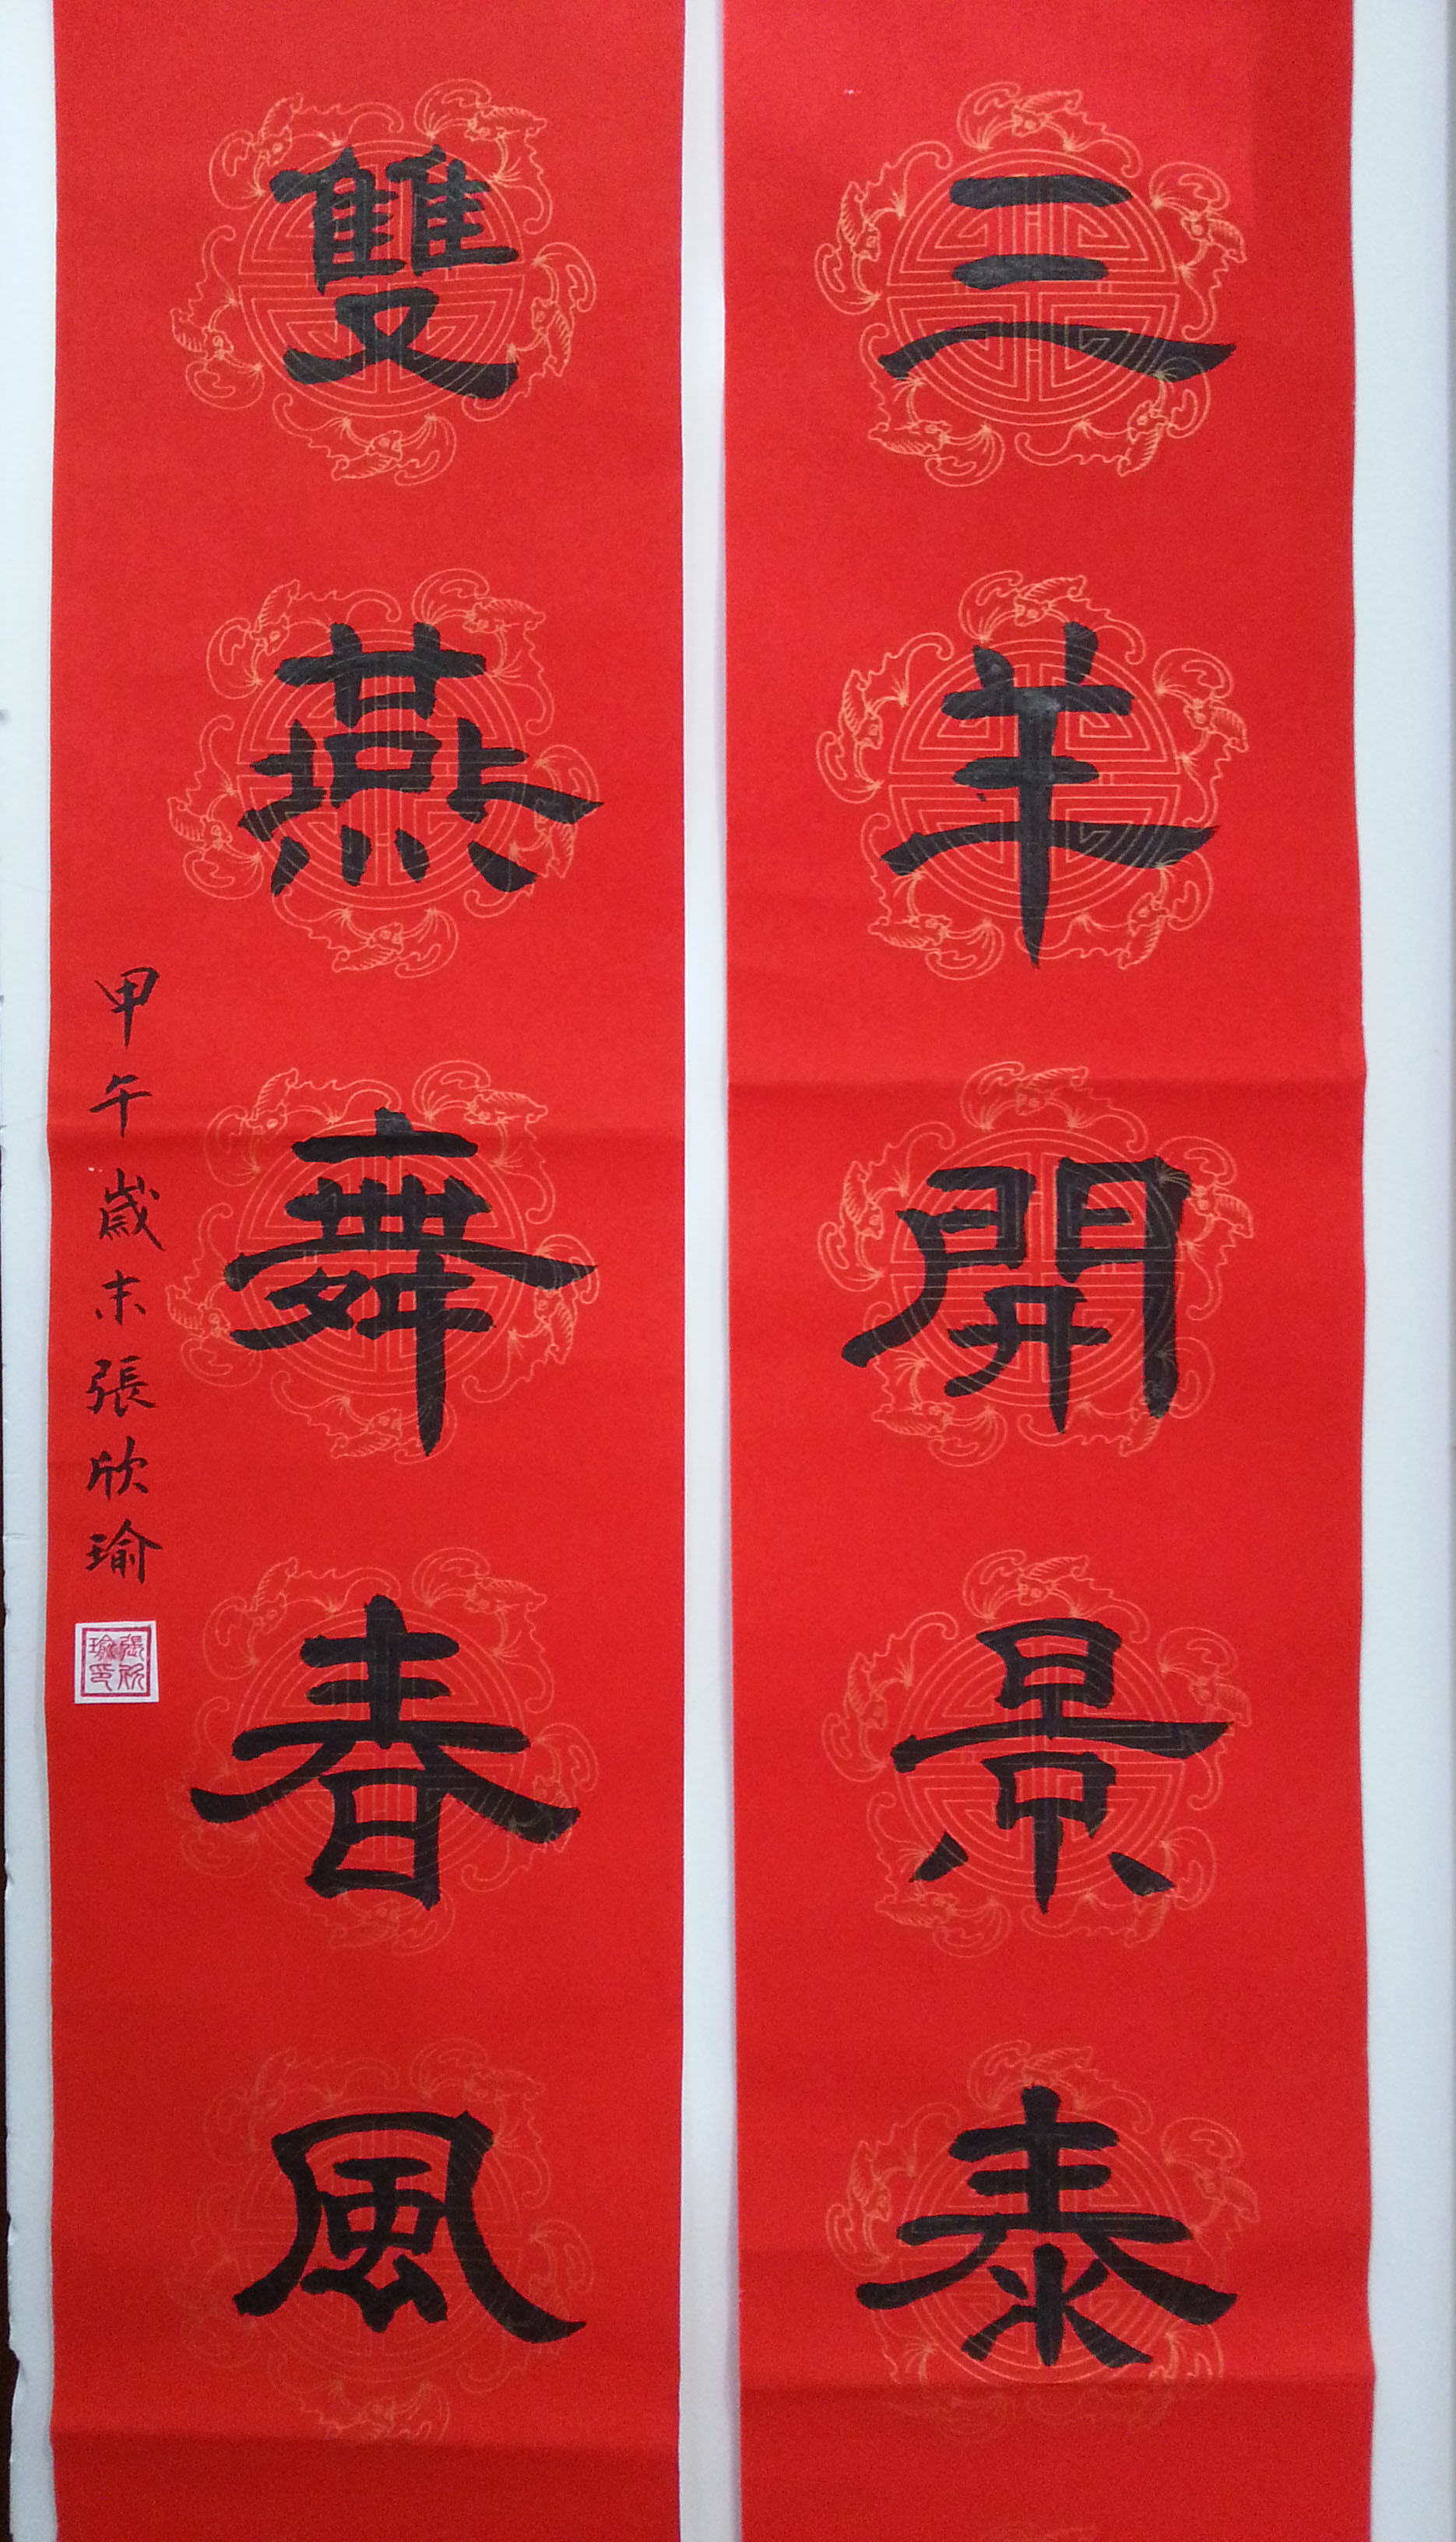 三羊開景泰
雙燕舞春風
甲午歲末張欣瑜
張欣瑜印